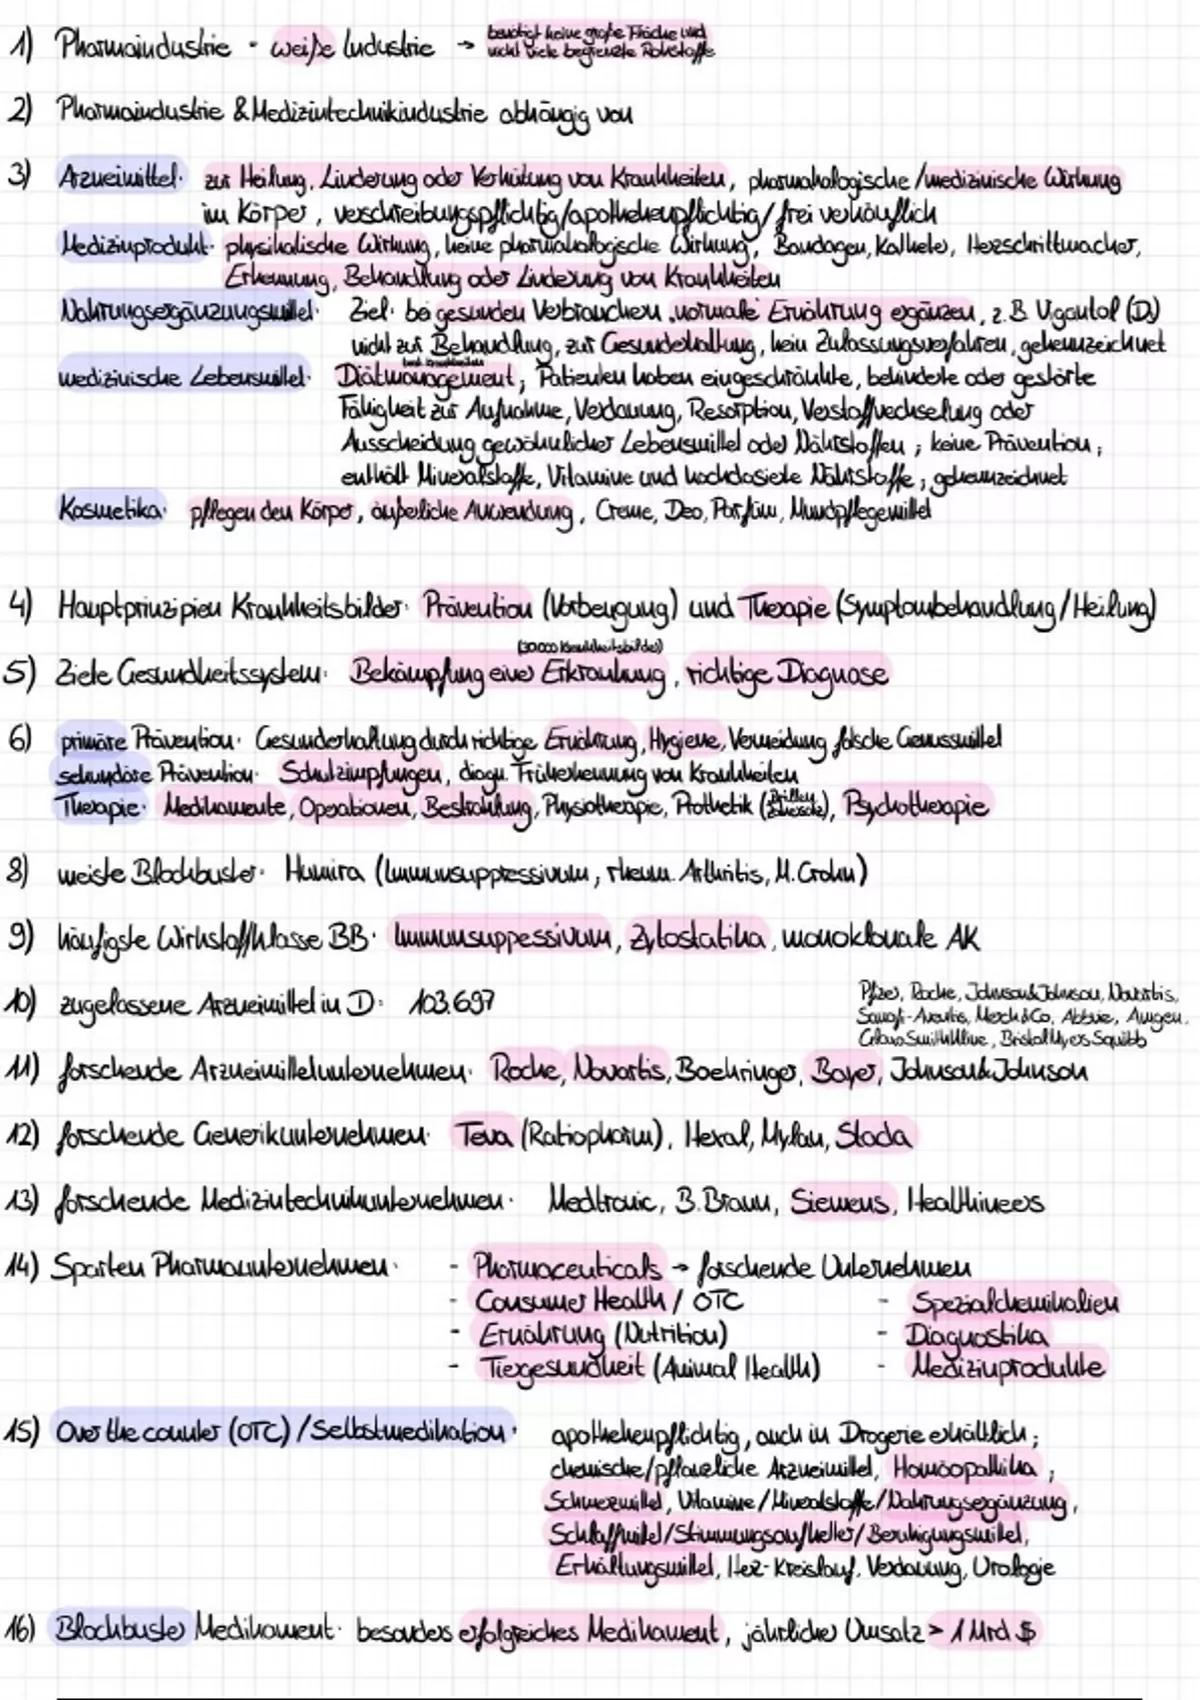 1) Pharmaindustrie - weiße Industrie → benötigt keine große Fläche und
nicht viele begrenzte Rohstoffe
2) Pharmaindustrie & Medizintechnikindustrie abhängig von
3) Arzneimittel: zur Heilung, Linderung oder Verhütung von Krankheiten, pharmakologische/medizinische Wirkung
im Körper, verschreibungspflichtig/apothekenpflichtig/frei verkäuflich
Medizinprodukt: physikalische Wirkung, keine pharmakologische Wirkung, Bandagen, Katheter, Herzschrittmacher,
Erkennung, Behandlung oder Linderung von Krankheiten
Nahrungsergänzungsmittel: Ziel: bei gesunden Verbrauchern normale Ernährung ergänzen, z.B. Vigantol (D3)
nicht zur Behandlung, zur Gesunderhaltung, kein Zulassungsverfahren, gekennzeichnet
medizinische Lebensmittel: Diätmanagement; Patienten haben eingeschränkte, behinderte oder gestörte
Fähigkeit zur Aufnahme, Verdauung, Resorption, Verstoffwechselung oder
Ausscheidung gewöhnlicher Lebensmittel oder Nährstoffen; keine Prävention;
enthält Mineralstoffe, Vitamine und hochdosierte Nährstoffe; gekennzeichnet
Kosmetika: pflegen den Körper, äußerliche Anwendung, Creme, Deo, Parfüm, Mundpflegemittel
4) Hauptprinzipien Krankheitsbilder: Prävention (Vorbeugung) und Therapie (Symptombehandlung/Heilung)
(30.000 Krankheitsbilder)
5) Ziele Gesundheitssystem: Bekämpfung einer Erkrankung, richtige Diagnose
6) primäre Prävention: Gesunderhaltung durch richtige Ernährung, Hygiene, Vermeidung falsche Genussmittel
sekundäre Prävention: Schutzimpfungen, diagn. Früherkennung von Krankheiten
Therapie: Medikamente, Operationen, Bestrahlung, Physiotherapie, Prothetik (Brillen, Zahnersatz), Psychotherapie
8) meiste Blockbuster: Humira (Immunsuppressivum, rheum. Arthritis, M. Crohn)
9) häufigste Wirkstoffklasse BB: Immunsuppessivum, Zytostatika, monoklonale AK
10) zugelassene Arzneimittel in D: 103.697
Pfizer, Roche, Johnson&Johnson, Novartis,
Sanofi-Aventis, Merch&Co, Abbvie, Amgen,
GlaxoSmithKline, BristolMyersSquibb
11) forschende Arzneimittelunternehmen: Roche, Novartis, Boehringer, Bayer, Johnson&Johnson
12) forschende Generikunternehmen: Teva (Ratiopharm), Hexal, Mylan, Stada
13) forschende Medizintechnikunternehmen: Medtronic, B. Braun, Siemens, Healthineers
14) Sparten Pharmaunternehmen: - Pharmaceuticals → forschende Unternehmen
- Consumer Health / OTC - Spezialchemikalien
- Ernährung (Nutrition) - Diagnostika
- Tiergesundheit (Animal Health) - Medizinprodukte
15) Over the counter (OTC) / Selbstmedikation: apothekenpflichtig, auch in Drogerie erhältlich;
chemische/pflanzliche Arzneimittel, Homöopathika;
Schmerzmittel, Vitamine/Mineralstoffe/Nahrungsergänzung,
Schlafmittel/Stimmungsaufheller/Beruhigungsmittel,
Erkältungsmittel, Herz-Kreislauf, Verdauung, Urologie
16) Blockbuster Medikament: besonders erfolgreiches Medikament, jährlicher Umsatz > 1 Mrd $